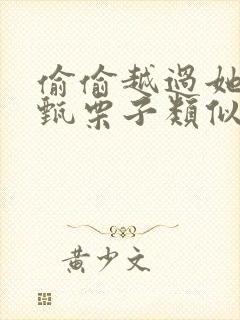 偷偷越過她
甄栗子類似
黃少文